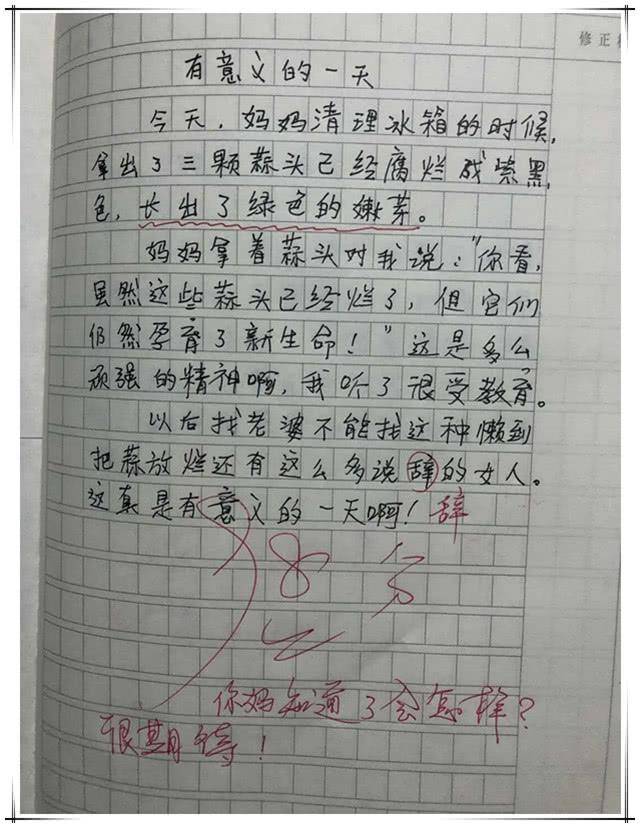 修正
有意义的一天
今天，妈妈清理冰箱的时候，
拿出了三颗蒜头已经腐烂成紫黑
色，长出了绿色的嫩芽。
妈妈拿着蒜头对我说："你看，
虽然这些蒜头已经烂了，但它们
仍然孕育了新生命！"这是多么
顽强的精神啊，我听了很受教育。
以后找老婆不能找这种懒到
把蒜放烂还有这么多说辞的女人。
这真是有意义的一天啊！辞
8分
你妈知道了会怎样？
很期待！